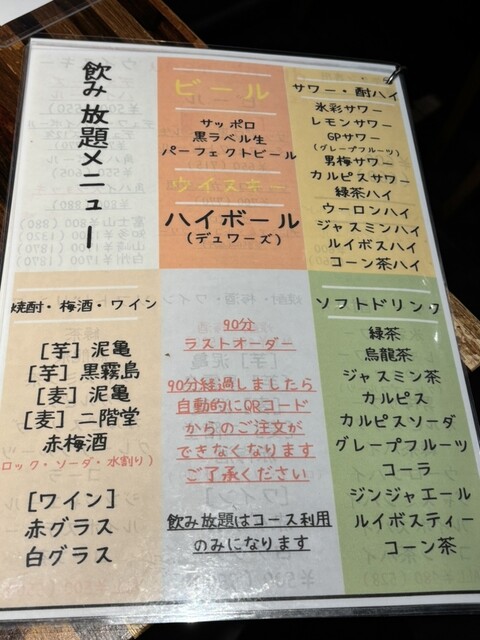 飲み放題メニュー
ビール
サッポロ
黒ラベル生
パーフェクトビール
ウイスキー
ハイボール
(デュワーズ)
サワー・酎ハイ
氷彩サワー
レモンサワー
GPサワー
(グレープフルーツ)
男梅サワー
カルピスサワー
緑茶ハイ
ウーロンハイ
ジャスミンハイ
ルイボスハイ
コーン茶ハイ
焼酎・梅酒・ワイン
[芋] 泥亀
[芋] 黒霧島
[麦] 泥亀
[麦] 二階堂
赤梅酒
ロック・ソーダ・水割り)
[ワイン]
赤グラス
白グラス
90分
ラストオーダー
90分経過しましたら
自動的にQRコード
からのご注文が
できなくなります
ご了承ください
飲み放題はコース利用
のみになります
ソフトドリンク
緑茶
烏龍茶
ジャスミン茶
カルピス
カルピスソーダ
グレープフルーツ
コーラ
ジンジャエール
ルイボスティー
コーン茶